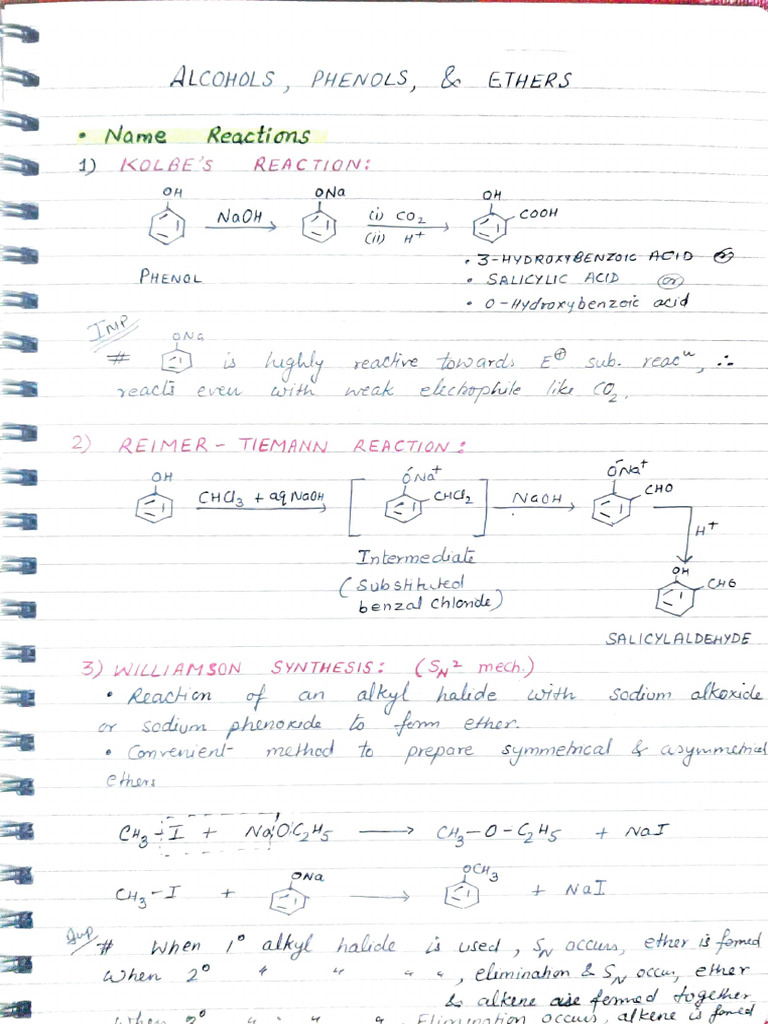 ALCOHOLS, PHENOLS, & ETHERS
• Name Reactions
1) KOLBE'S REACTION:
OH ONa OH
NaOH (i) CO2 COOH
(ii) H+
PHENOL
• 3-HYDROXYBENZOIC ACID or
• SALICYLIC ACID or
• O-Hydroxybenzoic acid
IMP
ONa
# is highly reactive towards E⊕ sub. reacⁿ, ∴
reacts even with weak electrophile like CO2.
2) REIMER-TIEMANN REACTION:
OH ŌNa+ ŌNa+
CHCl3 + aq NaOH CHCl2 NaOH CHO
H+
Intermediate
(Substituted
benzal chloride)
OH
CHO
SALICYLALDEHYDE
3) WILLIAMSON SYNTHESIS: (SN2 mech.)
• Reaction of an alkyl halide with sodium alkoxide
or sodium phenoxide to form ether.
• Convenient method to prepare symmetrical & asymmetrical
ethers
CH3-I + NaOC2H5 ⟶ CH3-O-C2H5 + NaI
ONa OCH3
CH3-I + ⟶ + NaI
Imp
# When 1° alkyl halide is used, SN occurs, ether is formed
When 2° " " " ", elimination & SN occur, ether
& alkene are formed together
When 3° " " " " Elimination occurs, alkene is formed